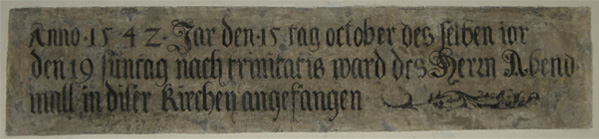 Anno · 1542 · Jar den · 15 tag october des selben jor
den 19 suntag nach trinitatis ward des Herrn Abend
mall in diser Kirchen angefangen